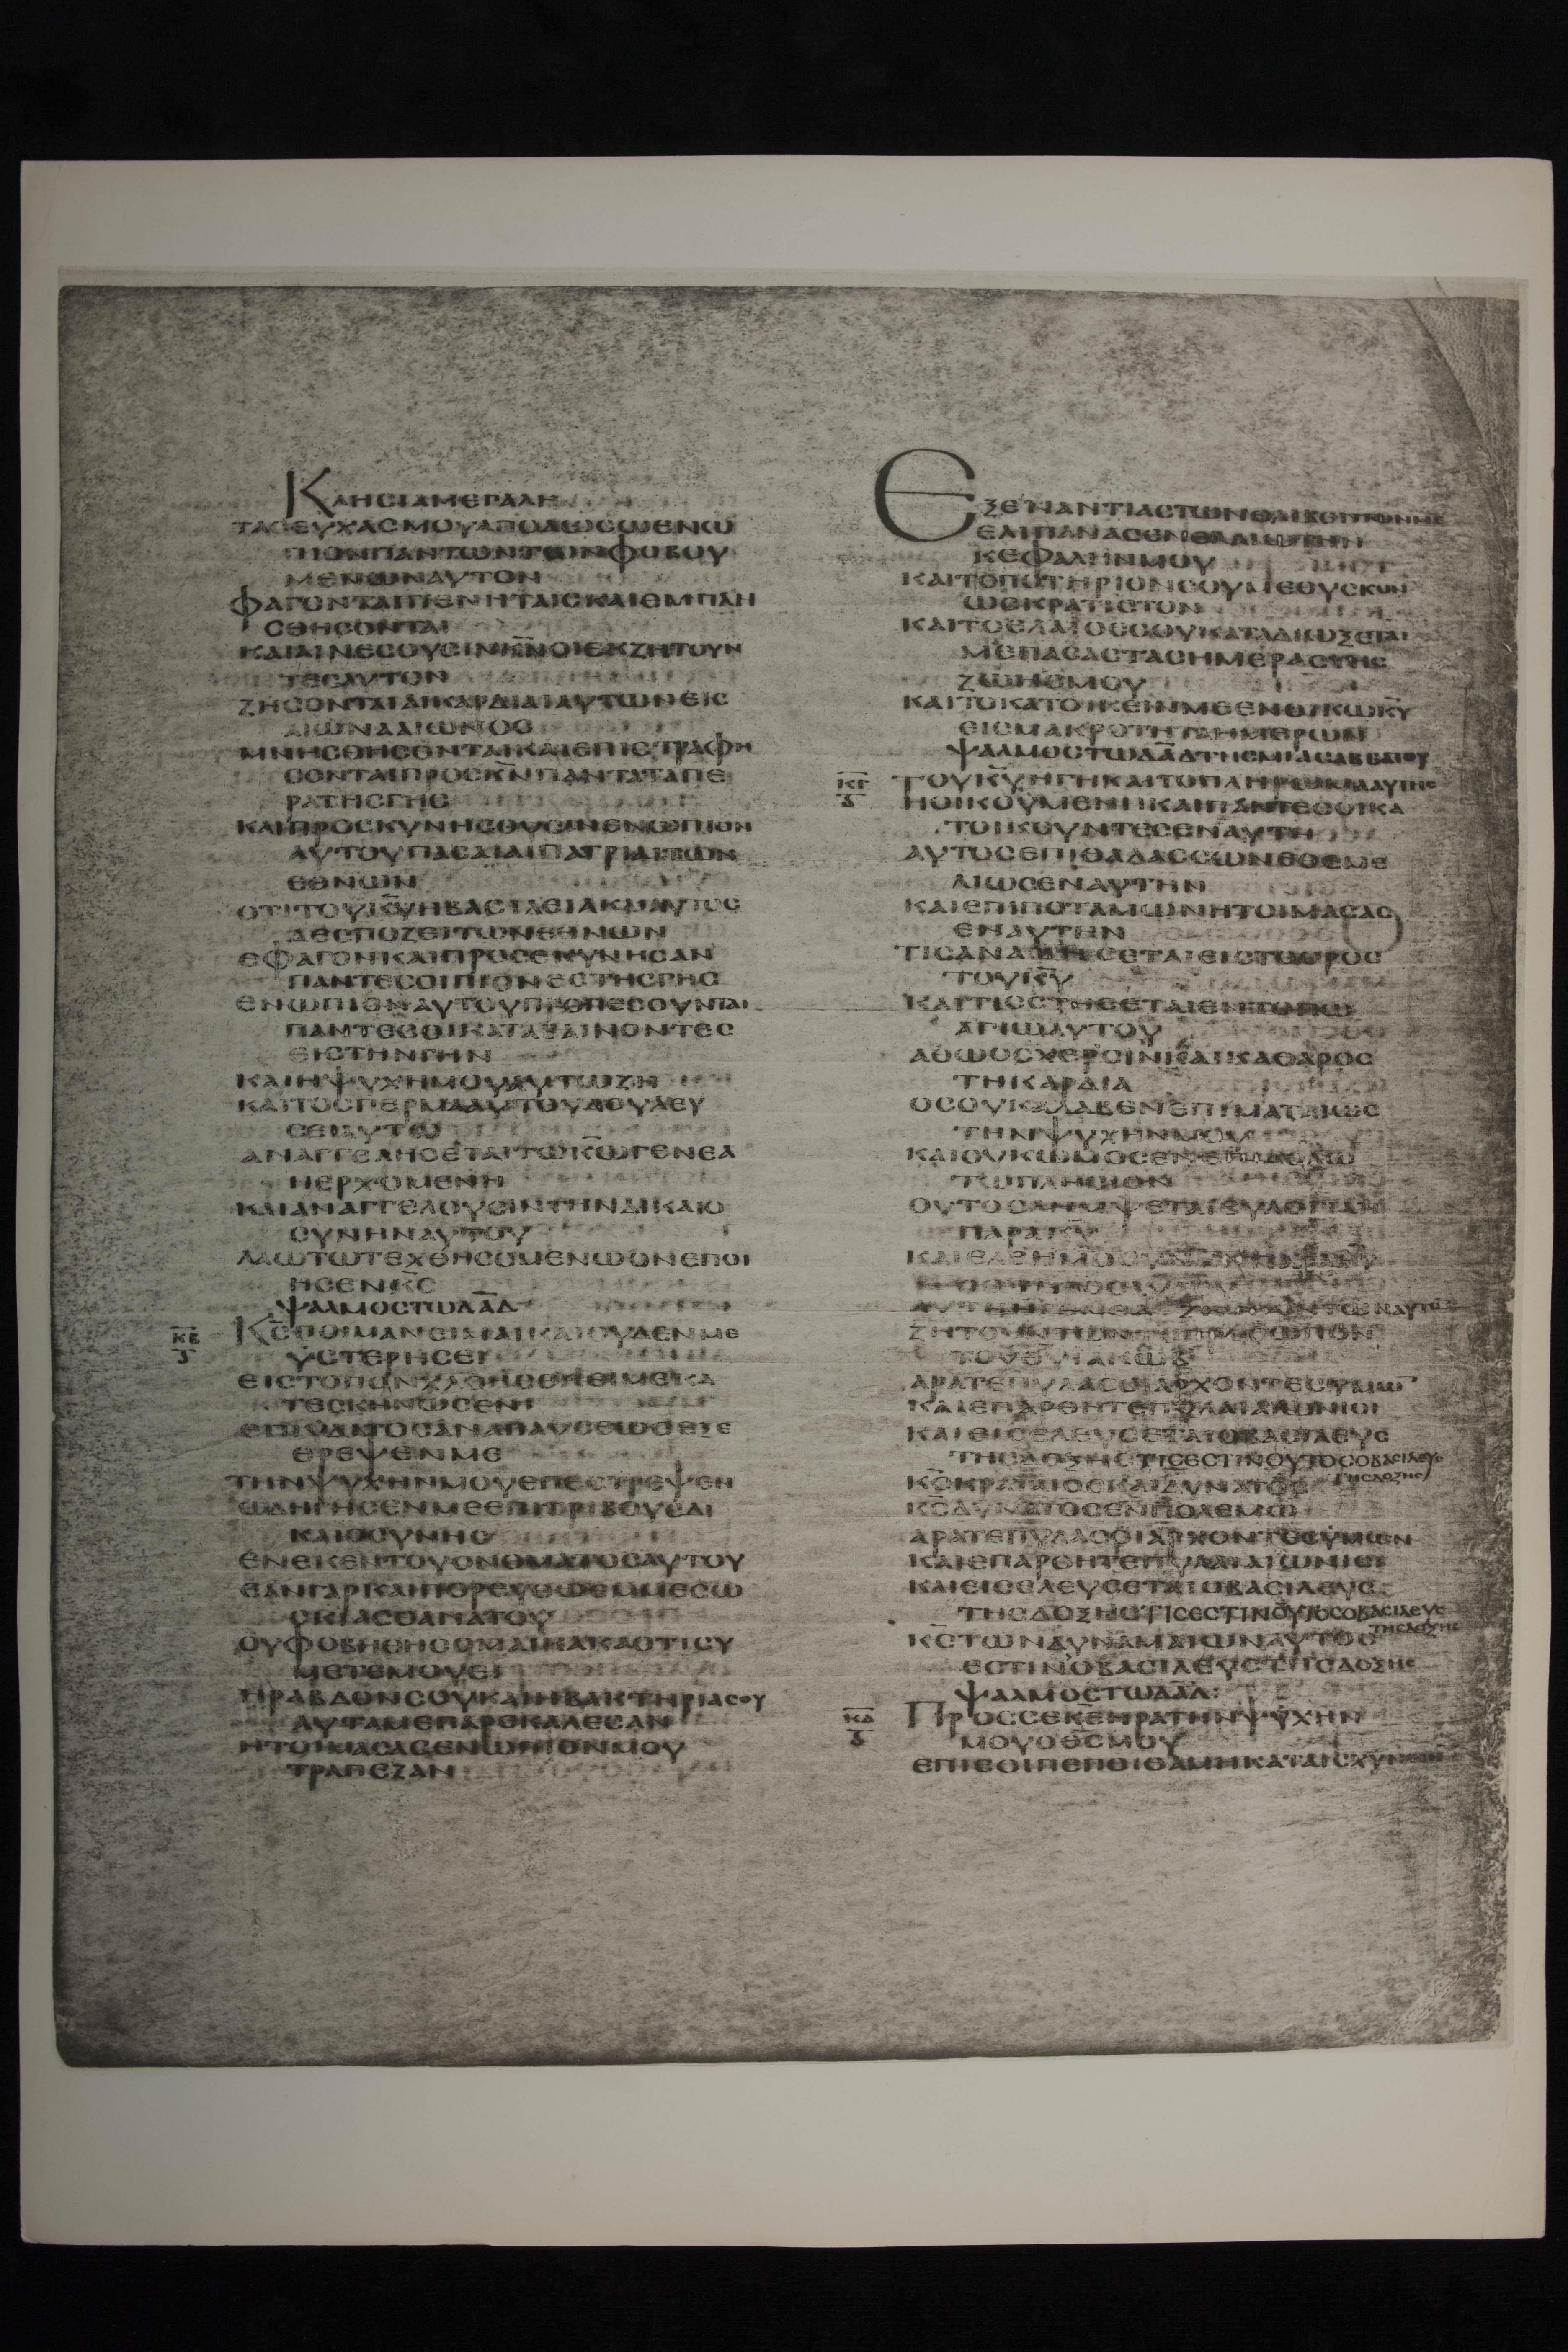 ΚΛΗСΙΑΜΕΓΑΛΗ
ΤΑСΕΥΧΑСΜΟΥΑΠΟΔΩСΩΕΝΩ
ΠΙΟΝΠΑΝΤΩΝΤΩΝΦΟΒΟΥ
ΜΕΝΩΝΑΥΤΟΝ
ΦΑΓΟΝΤΑΙΠΕΝΗΤΑΙСΚΑΙΕΜΠΛΗ
СΘΗСΟΝΤΑΙ
ΚΑΙΑΙΝΕСΟΥСΙΝΚ̅Ν̅ΟΙΕΚΖΗΤΟΥΝ
ΤΕСΑΥΤΟΝ
ΖΗСΟΝΤΑΙΑΙΚΑΡΔΙΑΙΑΥΤΩΝΕΙС
ΑΙΩΝΑΑΙΩΝΟС
ΜΝΗСΘΗСΟΝΤΑΙΚΑΙΕΠΙСΤΡΑΦΗ
СΟΝΤΑΙΠΡΟСΚ̅Ν̅ΠΑΝΤΑΤΑΠΕ
ΡΑΤΗСΓΗС
ΚΑΙΠΡΟСΚΥΝΗСΟΥСΙΝΕΝΩΠΙΟΝ
ΑΥΤΟΥΠΑСΑΙΑΙΠΑΤΡΙΑΙΤΩΝ
ΕΘΝΩΝ
ΟΤΙΤΟΥΚ̅Υ̅ΗΒΑСΙΛΕΙΑΚΑΙΑΥΤΟС
ΔΕСΠΟΖΕΙΤΩΝΕΘΝΩΝ
ΕΦΑΓΟΝΚΑΙΠΡΟСΕΚΥΝΗСΑΝ
ΠΑΝΤΕСΟΙΠΙΟΝΕСΤΗСΓΗС
ΕΝΩΠΙΟΝΑΥΤΟΥΠΡΟΠΕСΟΥΝΤΑΙ
ΠΑΝΤΕСΟΙΚΑΤΑΒΑΙΝΟΝΤΕС
ΕΙСΤΗΝΓΗΝ
ΚΑΙΗΨΥΧΗΜΟΥΑΥΤΩΖΗ
ΚΑΙΤΟСΠΕΡΜΑΑΥΤΟΥΔΟΥΛΕΥ
СΕΙΑΥΤΩ
ΑΝΑΓΓΕΛΗСΕΤΑΙΤΩΚ̅Ω̅ΓΕΝΕΑ
ΗΕΡΧΟΜΕΝΗ
ΚΑΙΑΝΑΓΓΕΛΟΥСΙΝΤΗΝΔΙΚΑΙΟ
СΥΝΗΝΑΥΤΟΥ
ΛΑΩΤΩΤΕΧΘΗСΟΜΕΝΩΟΝΕΠΟΙ
ΗСΕΝΚ̅С̅
ΨΑΛΜΟСΤΩΔ̅Α̅Δ̅
Κ̅Β̅ Κ̅С̅ΠΟΙΜΑΝΕΙΜΑΙΚΑΙΟΥΔΕΝΜΕ
ΥСΤΕΡΗСΕΙ
ΕΙСΤΟΠΟΝΧΛΟΗСΟΠΟΙΜΕΙΚΑ
ΤΕСΚΗΝΩСΕΝ
ΕΠΙΥΔΑΤΟСΑΝΑΠΑΥСΕΩСΕΞΕ
ΕΡΕΨΕΝΜΕ
ΤΗΝΨΥΧΗΝΜΟΥΕΠΕСΤΡΕΨΕΝ
ΩΔΗΓΗСΕΝΜΕΕΠΙΤΡΙΒΟΥСΔΙ
ΚΑΙΟСΥΝΗС
ΕΝΕΚΕΝΤΟΥΟΝΟΜΑΤΟСΑΥΤΟΥ
ΕΑΝΓΑΡΚΑΙΠΟΡΕΥΘΩΕΜΜΕСΩ
СΚΙΑСΘΑΝΑΤΟΥ
ΟΥΦΟΒΗΘΗСΟΜΑΙΚΑΚΑΟΤΙСΥ
ΜΕΤΕΜΟΥΕΙ
ΗΡΑΒΔΟΝСΟΥΚΑΙΗΒΑΚΤΗΡΙΑСΟΥ
ΑΥΤΑΜΕΠΑΡΕΚΑΛΕСΑΝ
ΗΤΟΙΜΑСΑСΕΝΩΠΙΟΝΜΟΥ
ΤΡΑΠΕΖΑΝ
ΕΞΕΝΑΝΤΙΑСΤΩΝΘΛΙΒΟΝΤΩΝΜΕ
ΕΛΙΠΑΝΑСΕΝΕΛΑΙΩΤΗΝ
ΚΕΦΑΛΗΝΜΟΥ
ΚΑΙΤΟΠΟΤΗΡΙΟΝСΟΥΜΕΘΥСΚΟΝ
ΩСΚΡΑΤΙСΤΟΝ
ΚΑΙΤΟΕΛΑΙΟССΟΥΚΑΤΑΔΙΩΞΕΤΑΙ
ΜΕΠΑСΑСΤΑСΗΜΕΡΑСΤΗС
ΖΩΗСΜΟΥ
ΚΑΙΤΟΚΑΤΟΙΚΕΙΝΜΕΕΝΟΙΚΩΚ̅Υ̅
ΕΙСΜΑΚΡΟΤΗΤΑΗΜΕΡΩΝ
ΨΑΛΜΟСΤΩΔ̅Α̅Δ̅ΤΗСΜΙΑСΑΒΒΑΤΟΥ
Κ̅Γ̅ ΤΟΥΚ̅Υ̅ΗΓΗΚΑΙΤΟΠΛΗΡΩΜΑΑΥΤΗС
ΗΟΙΚΟΥΜΕΝΗΚΑΙΠΑΝΤΕСΟΙΚΑ
ΤΟΙΚΟΥΝΤΕСΕΝΑΥΤΗ
ΑΥΤΟСΕΠΙΘΑΛΑССΩΝΕΘΕΜΕ
ΛΙΩСΕΝΑΥΤΗΝ
ΚΑΙΕΠΙΠΟΤΑΜΩΝΗΤΟΙΜΑСΑС
ΕΝΑΥΤΗΝ
ΤΙСΑΝΑΒΗСΕΤΑΙΕΙСΤΟΟΡΟС
ΤΟΥΚ̅Υ̅
ΚΑΙΤΙССΤΗСΕΤΑΙΕΝΤΟΠΩ
ΑΓΙΩΑΥΤΟΥ
ΑΘΩΟСΧΕΡСΙΝΚΑΙΚΑΘΑΡΟС
ΤΗΚΑΡΔΙΑ
ΟСΟΥΚΕΛΑΒΕΝΕΠΙΜΑΤΑΙΩС
ΤΗΝΨΥΧΗΝΜΟΥ
ΚΑΙΟΥΚΩΜΟСΕΝΕΠΙΔΟΛΩ
ΤΩΠΛΗСΙΟΝ
ΟΥΤΟСΛΗΜΨΕΤΑΙΕΥΛΟΓΙΑΝ
ΠΑΡΑΚ̅Υ̅
ΚΑΙΕΛΕΗΜΟСΥΝΗΝ
ΑΥΤΗΗΓΕΝΕΑΖΗΤΟΥΝΤΩΝΑΥΤΟΝ
ΖΗΤΟΥΝΤΩΝΤΟΠΡΟСΩΠΟΝ
ΤΟΥΘ̅Υ̅ΙΑΚΩΒ
ΑΡΑΤΕΠΥΛΑСΟΙΑΡΧΟΝΤΕСΥΜΩ̅
ΚΑΙΕΠΑΡΘΗΤΕΠΥΛΑΙΑΙΩΝΙΟΙ
ΚΑΙΕΙСΕΛΕΥСΕΤΑΙΟΒΑСΙΛΕΥС
ΤΗСΔΟΞΗСΤΙСΕСΤΙΝΟΥΤΟСΟΒΑСΙΛΕΥС
ΤΗСΔΟΞΗС
Κ̅С̅ΚΡΑΤΑΙΟСΚΑΙΔΥΝΑΤΟС
Κ̅С̅ΔΥΝΑΤΟСΕΝΠΟΛΕΜΩ
ΑΡΑΤΕΠΥΛΑСΟΙΑΡΧΟΝΤΕСΥΜΩΝ
ΚΑΙΕΠΑΡΘΗΤΕΠΥΛΑΙΑΙΩΝΙΟΙ
ΚΑΙΕΙСΕΛΕΥСΕΤΑΙΟΒΑСΙΛΕΥС
ΤΗСΔΟΞΗСΤΙСΕСΤΙΝΟΥΤΟСΟΒΑСΙΛΕΥС
ΤΗСΔΟΞΗС
Κ̅С̅ΤΩΝΔΥΝΑΜΑΙΩΝΑΥΤΟС
ΕСΤΙΝΟΒΑСΙΛΕΥСΤΗСΔΟΞΗС
ΨΑΛΜΟСΤΩΔ̅Α̅Δ̅:
Κ̅Δ̅ ΠΡΟССΕΚ̅Ε̅ΗΡΑΤΗΝΨΥΧΗΝ
ΜΟΥΟΘ̅С̅ΜΟΥ
ΕΠΙСΟΙΠΕΠΟΙΘΑΜΗΚΑΤΑΙСΧΥΝΘΕΙΗΝ